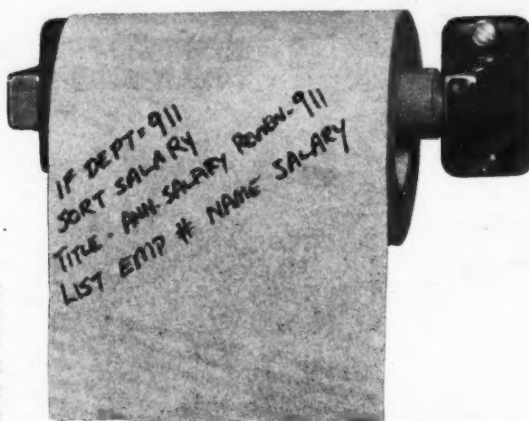 IF DEPT=911
SORT SALARY
TITLE - ANN. SALARY REVIEW-911
LIST EMP # NAME SALARY